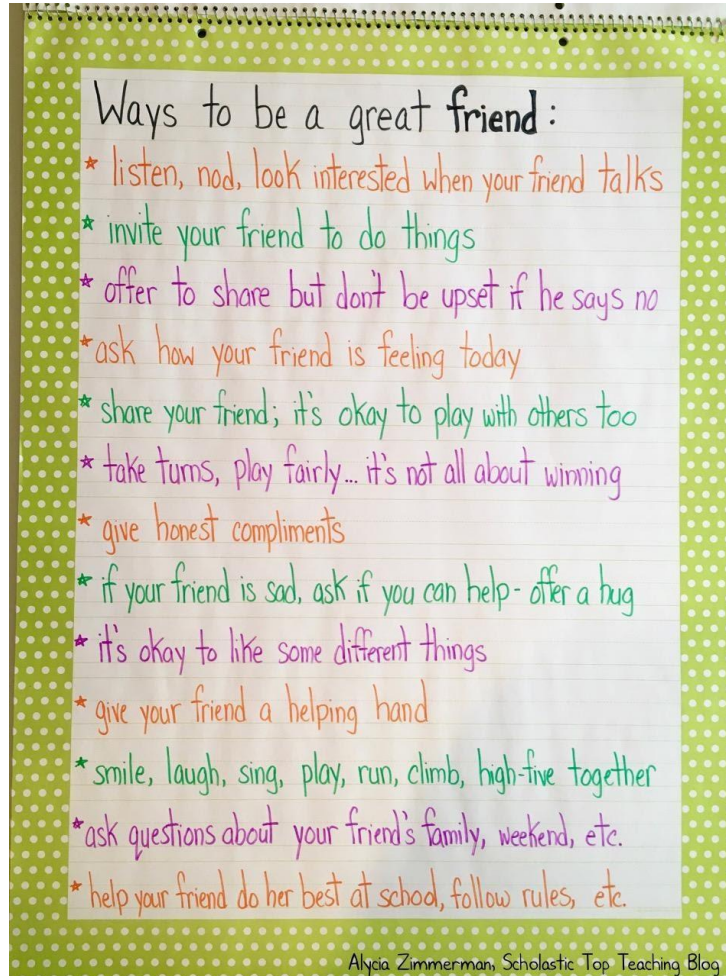 Ways to be a great friend:
* listen, nod, look interested when your friend talks
* invite your friend to do things
* offer to share but don't be upset if he says no
* ask how your friend is feeling today
* share your friend; it's okay to play with others too
* take turns, play fairly... it's not all about winning
* give honest compliments
* if your friend is sad, ask if you can help - offer a hug
* it's okay to like some different things
* give your friend a helping hand
* smile, laugh, sing, play, run, climb, high-five together
* ask questions about your friend's family, weekend, etc.
* help your friend do her best at school, follow rules, etc.
Alycia Zimmerman, Scholastic Top Teaching Blog